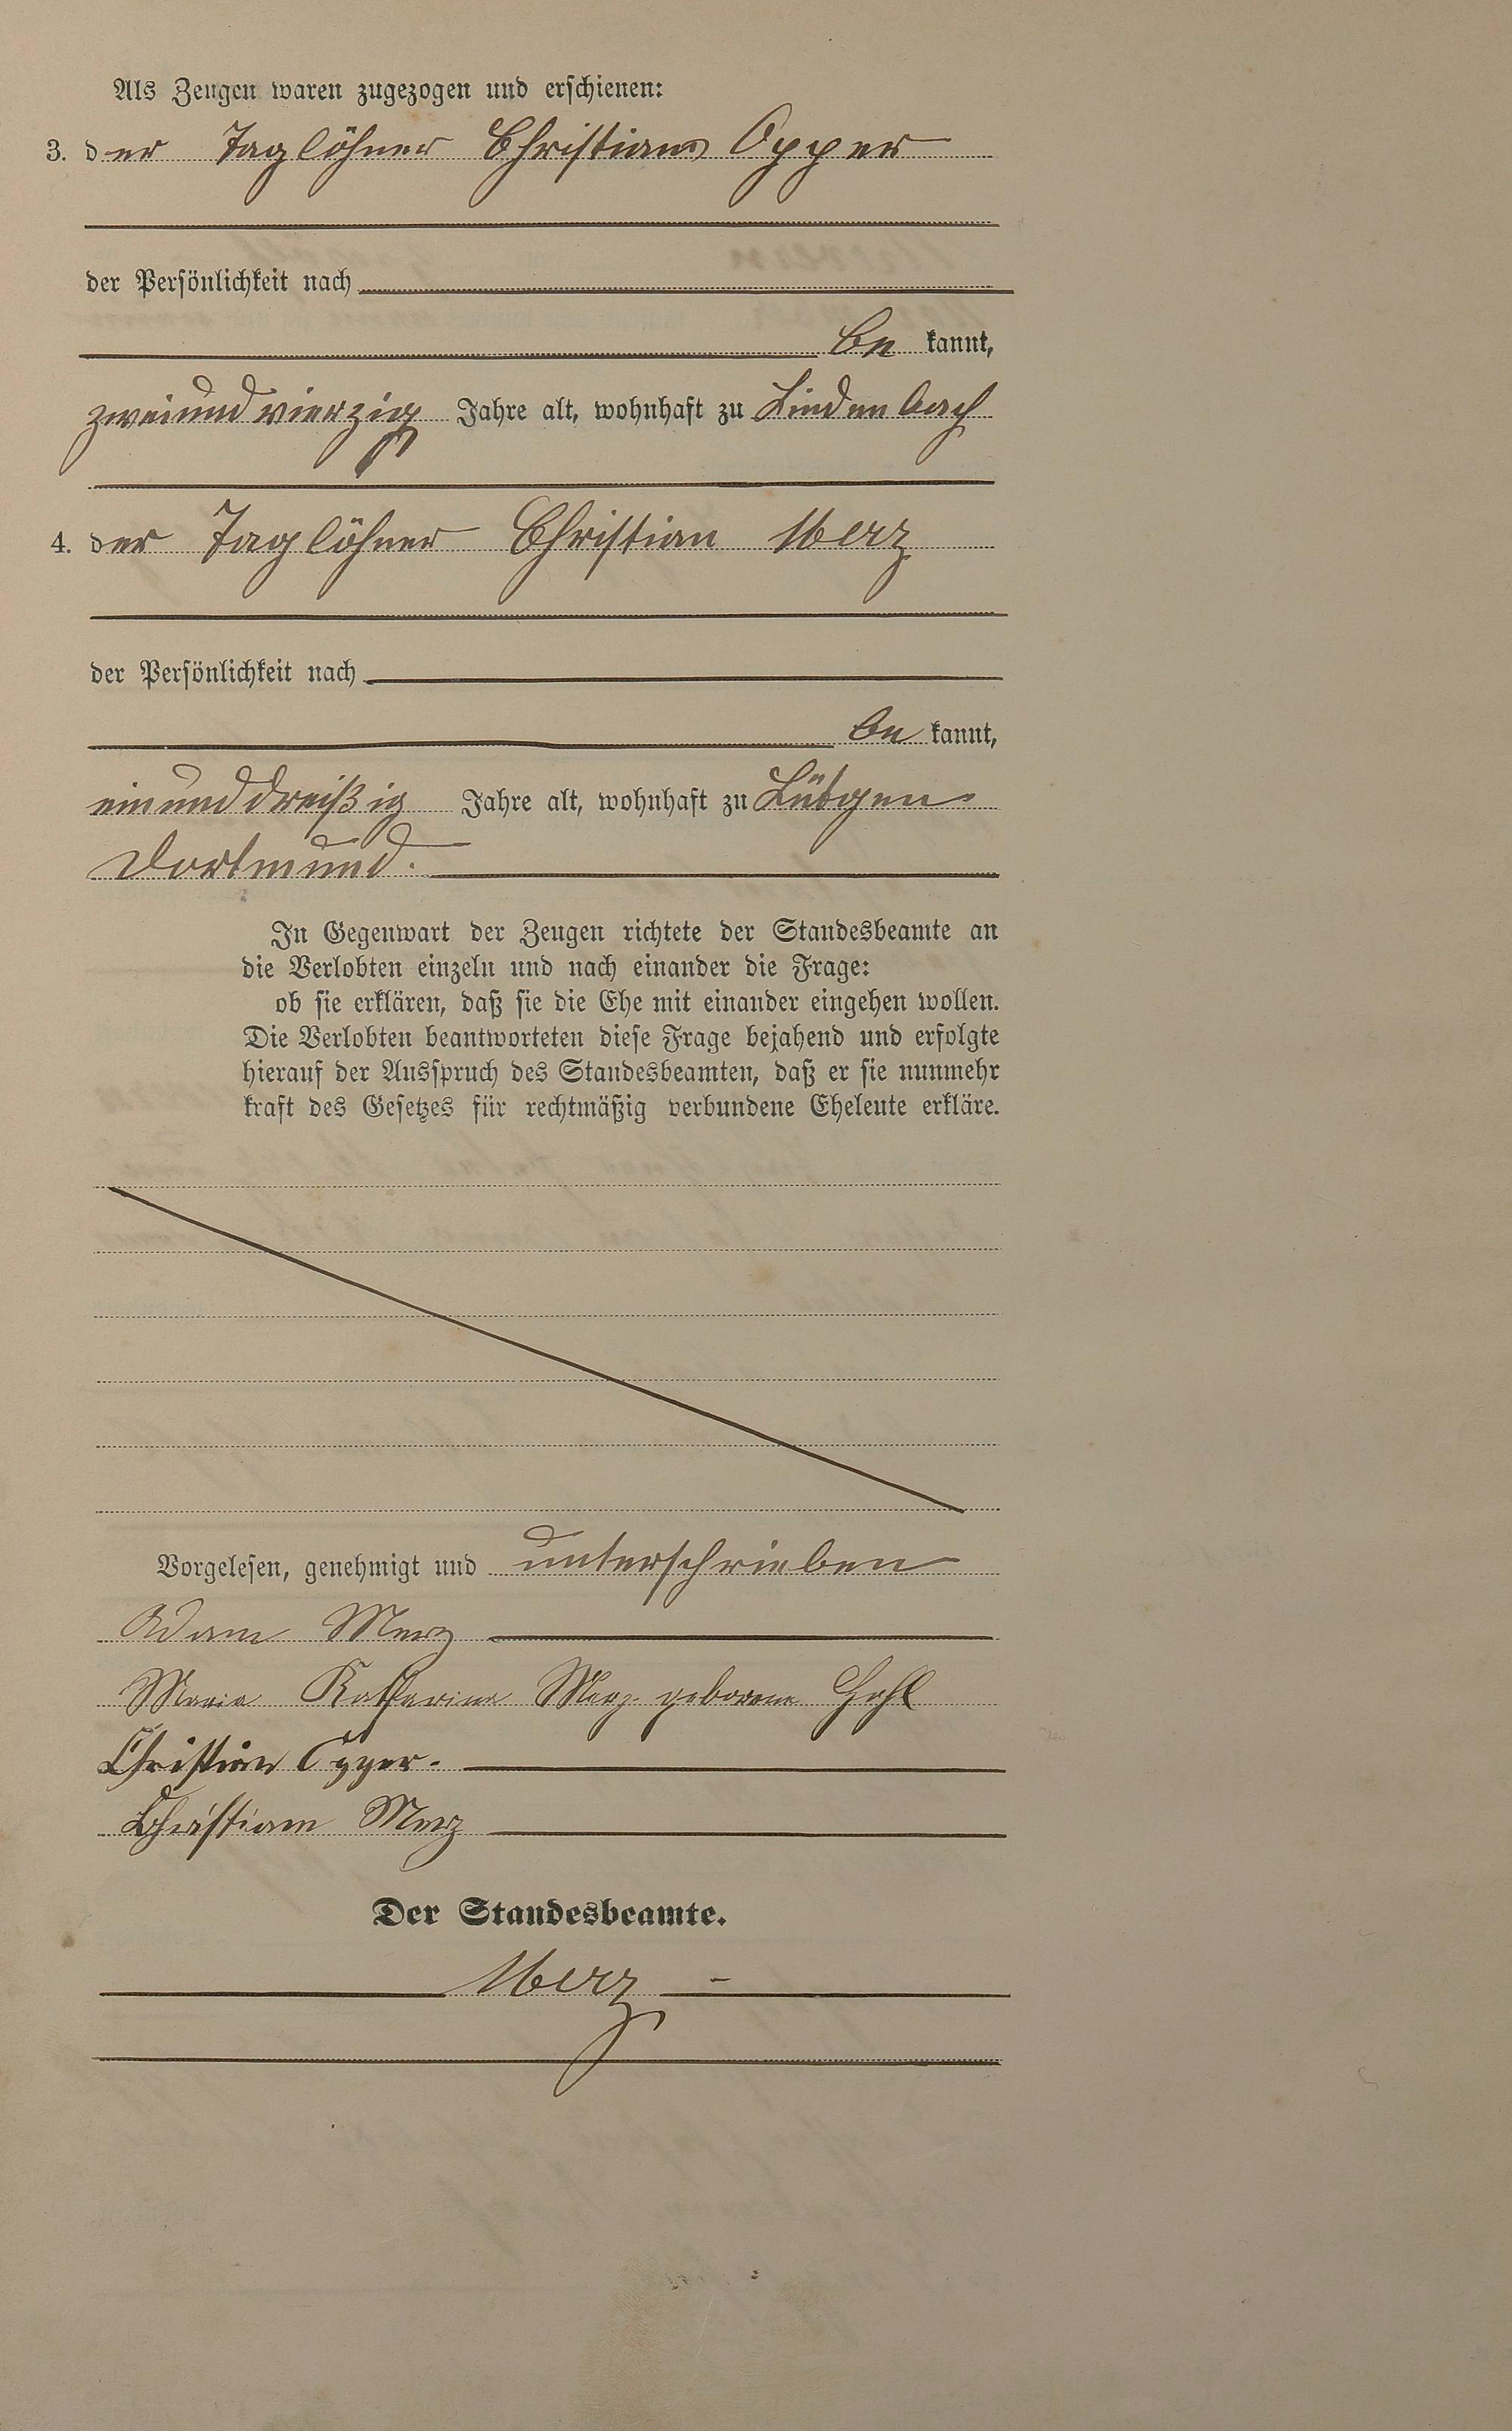 Als Zeugen waren zugezogen und erschienen:
3. der Taglöhner Christian Opper
der Persönlichkeit nach
be kannt,
zweiundvierzig Jahre alt, wohnhaft zu Lindenbach
4. der Taglöhner Christian Merz
der Persönlichkeit nach
be kannt,
einunddreißig Jahre alt, wohnhaft zu Lütgen-
dortmund.
In Gegenwart der Zeugen richtete der Standesbeamte an
die Verlobten einzeln und nach einander die Frage:
ob sie erklären, daß sie die Ehe mit einander eingehen wollen.
Die Verlobten beantworteten diese Frage bejahend und erfolgte
hierauf der Ausspruch des Standesbeamten, daß er sie nunmehr
kraft des Gesetzes für rechtmäßig verbundene Eheleute erkläre.
Vorgelesen, genehmigt und unterschrieben
Adam Merz
Maria Katharina Merz geborene Hohl
Christian Opper.
Christian Merz
Der Standesbeamte.
Merz